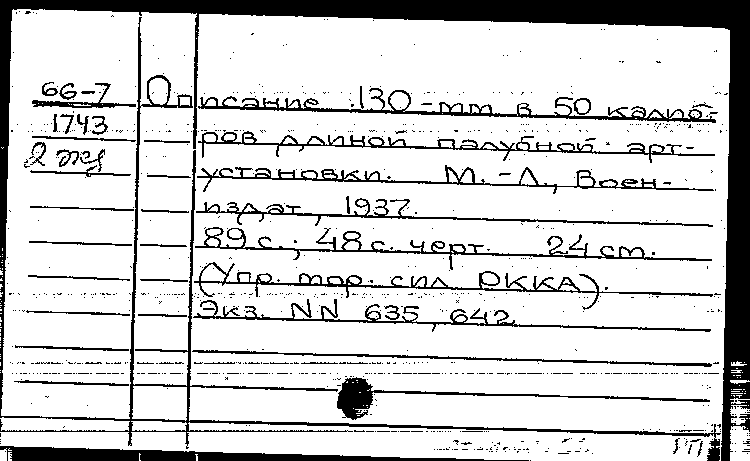 66-7
1743
2 экз
Описание 130-мм в 50 калиб-
ров длиной палубной арт-
установки. М.-Л., Воен-
издат, 1937.
89 с.; 48 с. черт. 24 см.
(Упр. мор. сил РККА).
Экз. NN 635, 642.
РП